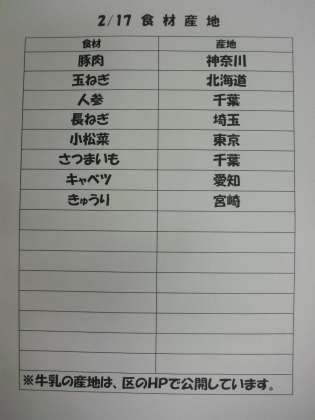 2/17 食材産地
食材 産地
豚肉 神奈川
玉ねぎ 北海道
人参 千葉
長ねぎ 埼玉
小松菜 東京
さつまいも 千葉
キャベツ 愛知
きゅうり 宮崎
※牛乳の産地は、区のHPで公開しています。